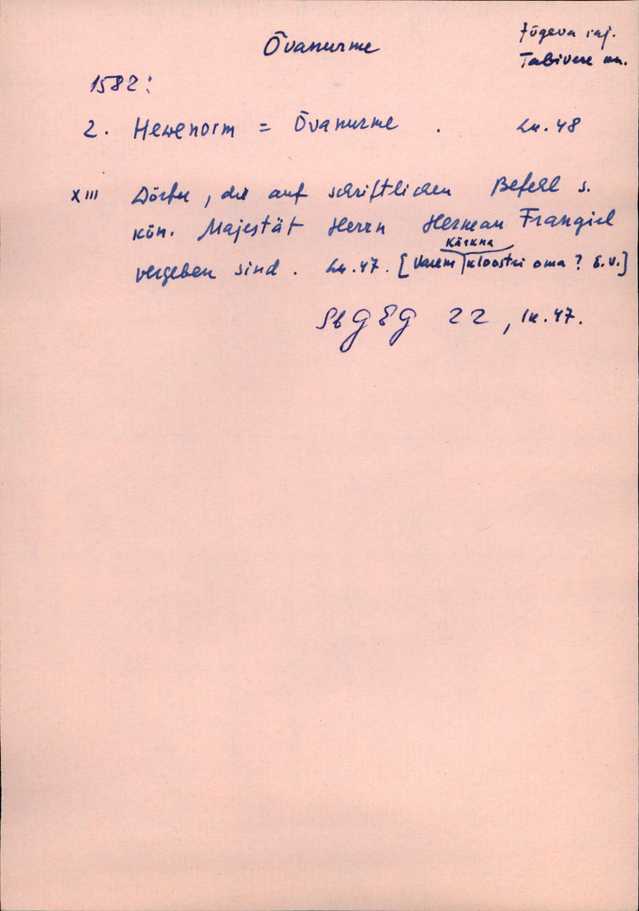 Õvanurme
Jõgeva raj.
Tabivere nn.
1582:
2. Hewenorm = Õvanurme. Lk. 48
XIII Dörfer, die auf schriftlichen Befehl s.
kön. Majestät Herrn Herman Frangiel
Kärkna
vergeben sind. Lk. 47. [Varem kloostri oma? E.V.]
Sb GEG 22, lk. 47.